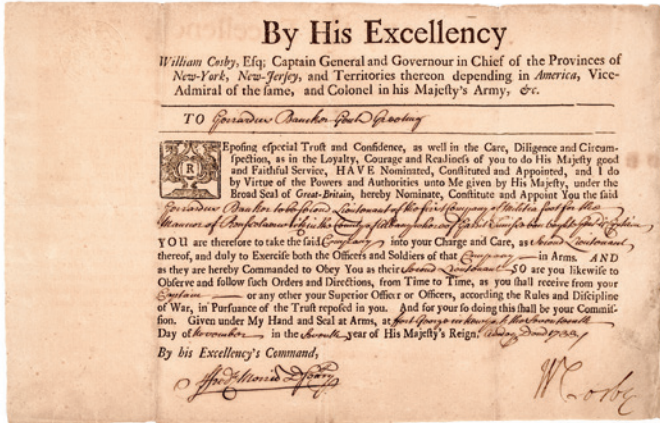 By His Excellency
William Cosby, Esq; Captain General and Governour in Chief of the Provinces of
New-York, New-Jersey, and Territories thereon depending in America, Vice-
Admiral of the same, and Colonel in his Majesty's Army, &c.
TO Gerardus Bancker Gent. Greeting
REposing especial Trust and Confidence, as well in the Care, Diligence and Circum-
spection, as in the Loyalty, Courage and Readiness of you to do His Majesty good
and Faithful Service, HAVE Nominated, Constituted and Appointed, and I do
by Virtue of the Powers and Authorities unto Me given by His Majesty, under the
Broad Seal of Great-Britain, hereby Nominate, Constitute and Appoint You the said
Gerardus Bancker to be Second Lieutenant of the first Company of Militia foot for the
Mannor of in the County of Albany whereof is Captain
YOU are therefore to take the said Company into your Charge and Care, as Second Lieutenant
thereof, and duly to Exercise both the Officers and Soldiers of that Company in Arms. AND
as they are hereby Commanded to Obey You as their Second Lieutenant SO are you likewise to
Observe and follow such Orders and Directions, from Time to Time, as you shall receive from your
Captain or any other your Superior Officer or Officers, according the Rules and Discipline
of War, in Pursuance of the Trust reposed in you. And for your so doing this shall be your Commis-
sion. Given under My Hand and Seal at Arms, at Fort George in New york the
Day of November in the Seventh year of His Majesty's Reign. 1733
By his Excellency's Command,
Fred. Morris D Secry
W Cosby